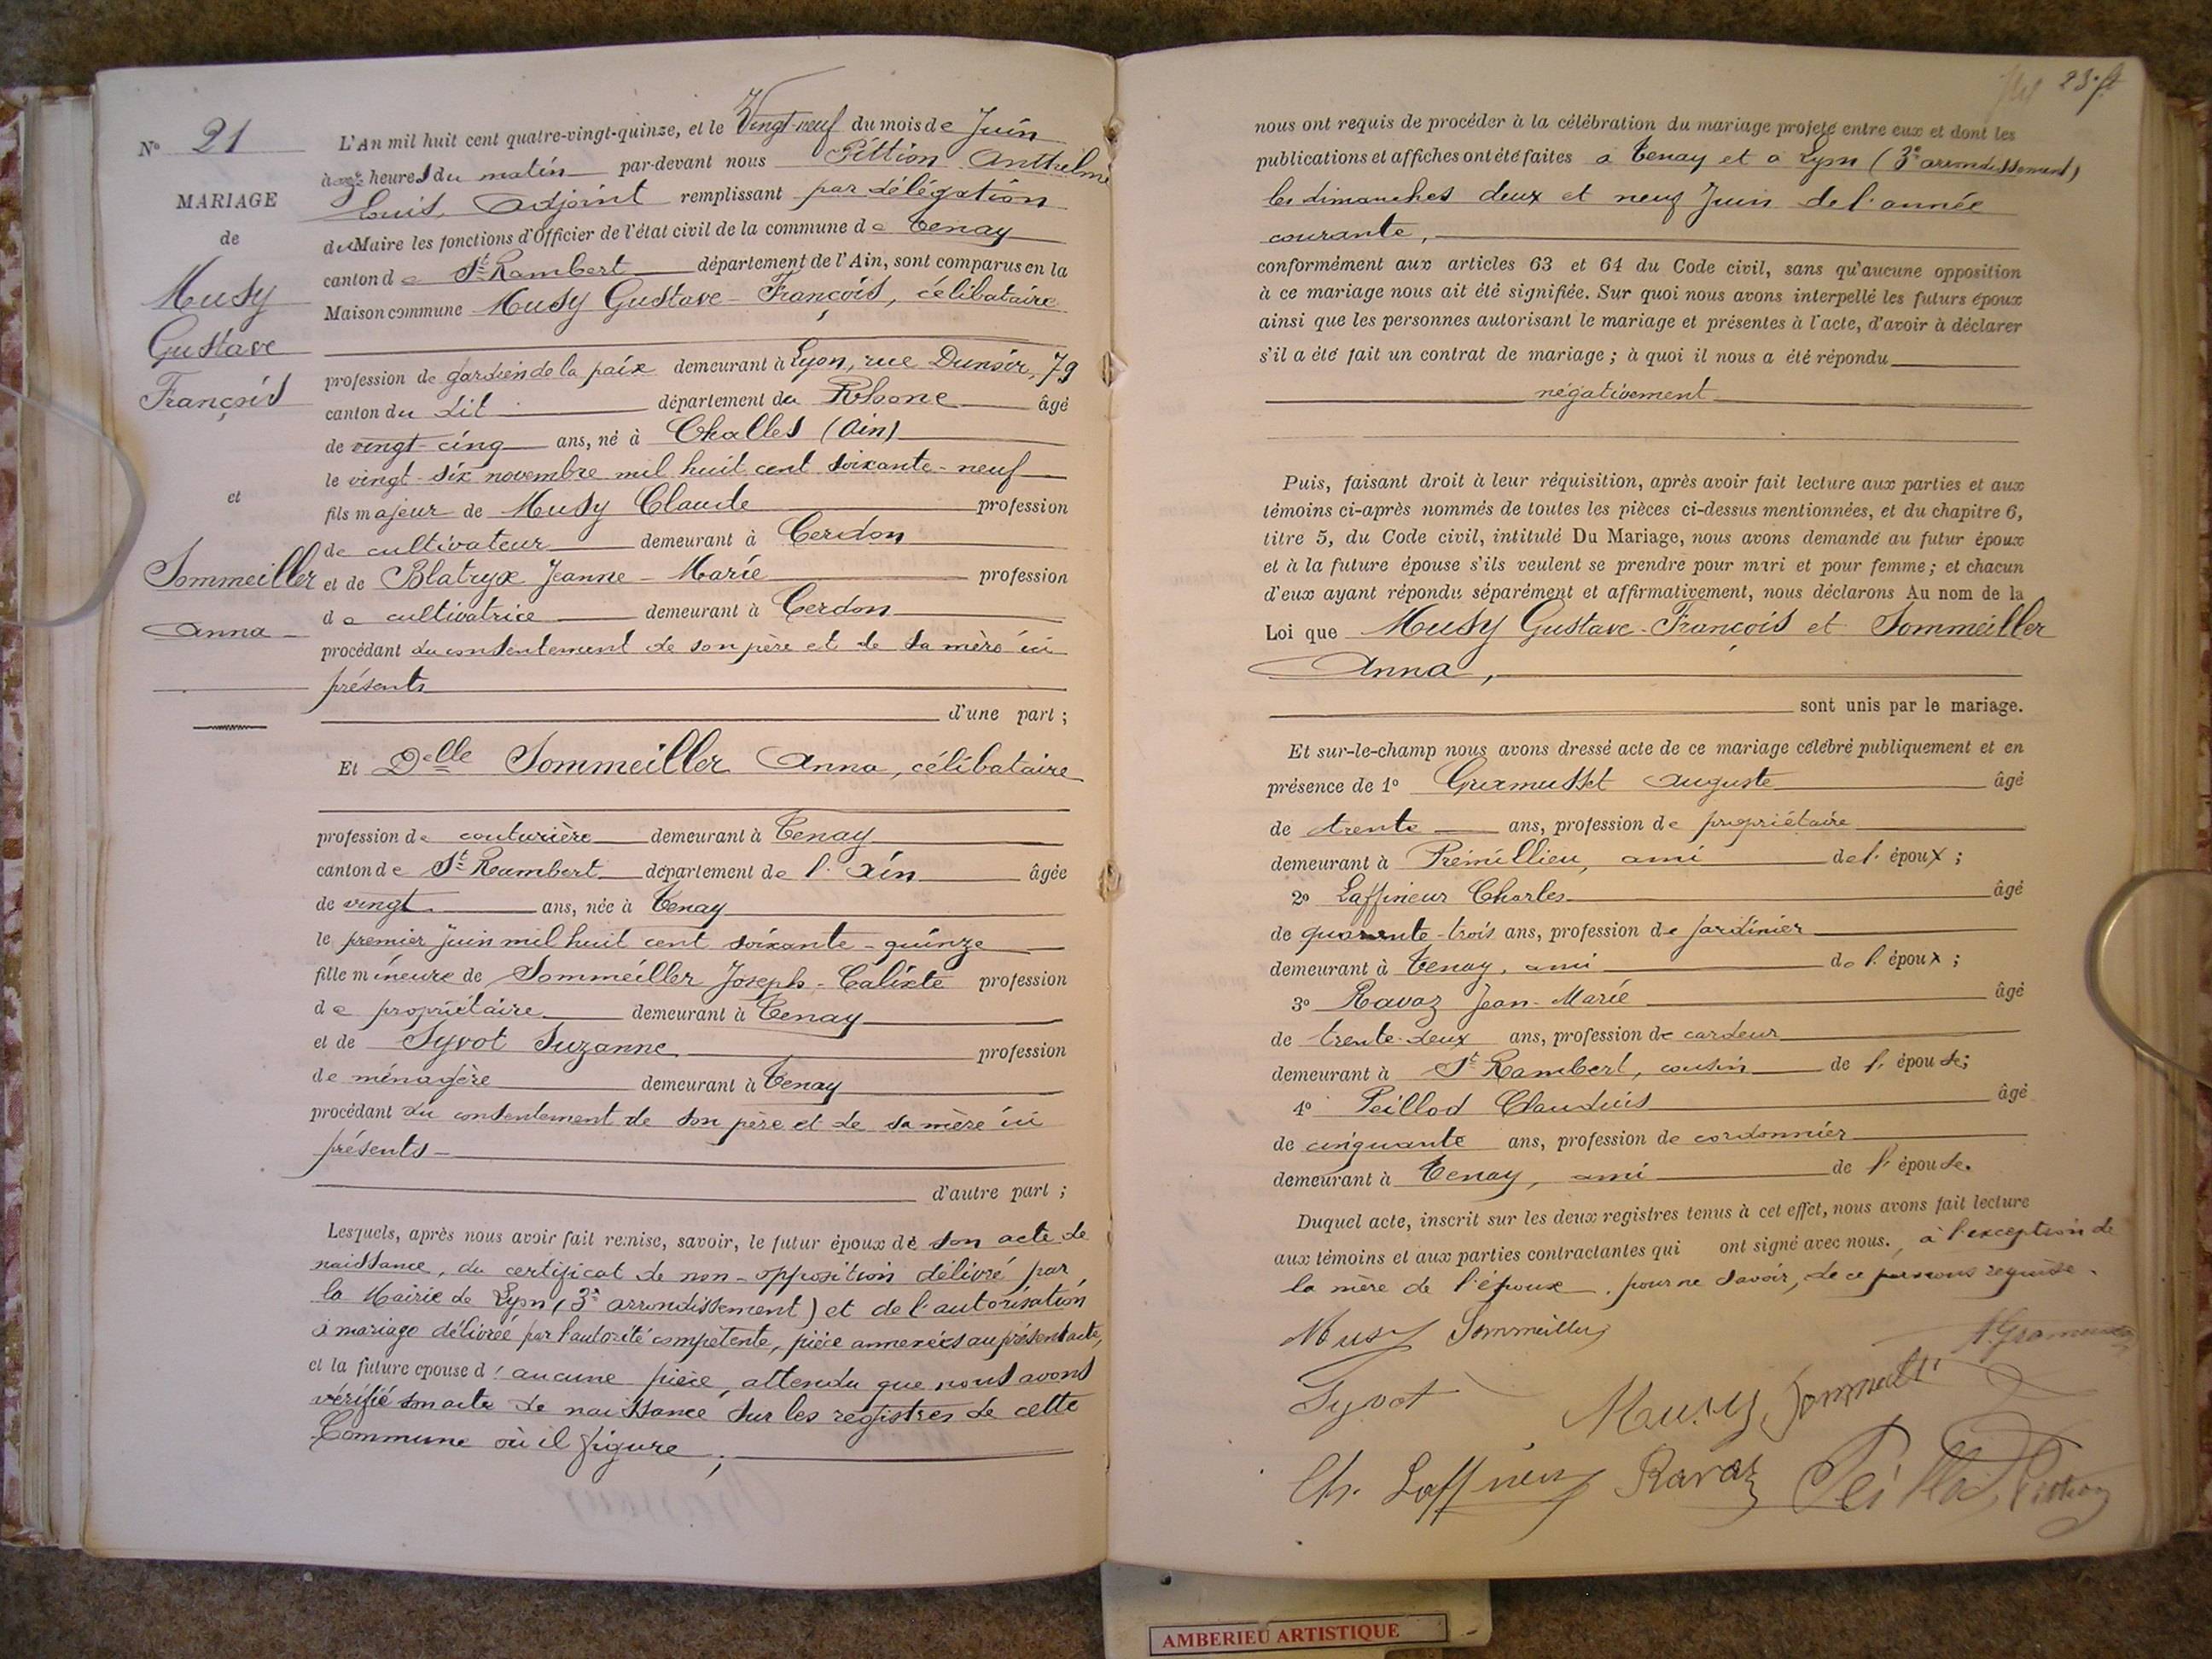 N° 21
MARIAGE
de
Musy
Gustave
François
et
Sommeiller
Anna
L'An mil huit cent quatre-vingt-quinze, et le Vingt-neuf du mois de Juin
à heures du matin par-devant nous Pittion Anthelme
Louis, Adjoint remplissant par délégation
du Maire les fonctions d'Officier de l'état civil de la commune de Tenay
canton de St Rambert département de l'Ain, sont comparus en la
Maison commune Musy Gustave-François, célibataire
profession de gardien de la paix demeurant à Lyon, rue Dunoir, 79
canton du dit département du Rhône âgé
de vingt-cinq ans, né à Challes (Ain)
le vingt-six novembre mil huit cent soixante-neuf
fils majeur de Musy Claude profession
de cultivateur demeurant à Cerdon
et de Blatryx Jeanne-Marie profession
de cultivatrice demeurant à Cerdon
procédant du consentement de son père et de sa mère ici
présents
d'une part ;
Et Delle Sommeiller Anna, célibataire
profession de couturière demeurant à Tenay
canton de St Rambert département de l'Ain âgée
de vingt ans, née à Tenay
le premier juin mil huit cent soixante-quinze
fille mineure de Sommeiller Joseph-Calixte profession
de propriétaire demeurant à Tenay
et de Syvot Suzanne profession
de ménagère demeurant à Tenay
procédant du consentement de son père et de sa mère ici
présents
d'autre part ;
Lesquels, après nous avoir fait remise, savoir, le futur époux de son acte de
naissance, du certificat de non-opposition délivré par
la Mairie de Lyon (3e arrondissement) et de l'autorisation
à mariage délivrée par l'autorité compétente, pièce annexées au présent acte,
et la future épouse d'aucune pièce, attendu que nous avons
vérifié son acte de naissance sur les registres de cette
Commune où il figure ;
23
nous ont requis de procéder à la célébration du mariage projeté entre eux et dont les
publications et affiches ont été faites à Tenay et à Lyon (3e arrondissement)
les dimanches deux et neuf Juin de l'année
courante,
conformément aux articles 63 et 64 du Code civil, sans qu'aucune opposition
à ce mariage nous ait été signifiée. Sur quoi nous avons interpellé les futurs époux
ainsi que les personnes autorisant le mariage et présentes à l'acte, d'avoir à déclarer
s'il a été fait un contrat de mariage ; à quoi il nous a été répondu
négativement
Puis, faisant droit à leur réquisition, après avoir fait lecture aux parties et aux
témoins ci-après nommés de toutes les pièces ci-dessus mentionnées, et du chapitre 6,
titre 5, du Code civil, intitulé Du Mariage, nous avons demandé au futur époux
et à la future épouse s'ils veulent se prendre pour mari et pour femme ; et chacun
d'eux ayant répondu séparément et affirmativement, nous déclarons Au nom de la
Loi que Musy Gustave-François et Sommeiller
Anna,
sont unis par le mariage.
Et sur-le-champ nous avons dressé acte de ce mariage célébré publiquement et en
présence de 1° Auguste âgé
de trente ans, profession de propriétaire
demeurant à Prémillieu, ami de l'époux ;
2° Laffineur Charles âgé
de quarante-trois ans, profession de jardinier
demeurant à Tenay, ami de l'époux ;
3° Ravaz Jean-Marie âgé
de trente-deux ans, profession de cardeur
demeurant à St Rambert, cousin de l'épouse ;
4° Peillod Claudius âgé
de cinquante ans, profession de cordonnier
demeurant à Tenay, ami de l'épouse.
Duquel acte, inscrit sur les deux registres tenus à cet effet, nous avons fait lecture
aux témoins et aux parties contractantes qui ont signé avec nous, à l'exception de
la mère de l'époux, pour ne savoir, de ce par nous requise.
Musy Sommeiller
Syvot Musy Sommeiller
Ch. Laffineur Ravaz Peillod Pittion
AMBERIEU ARTISTIQUE